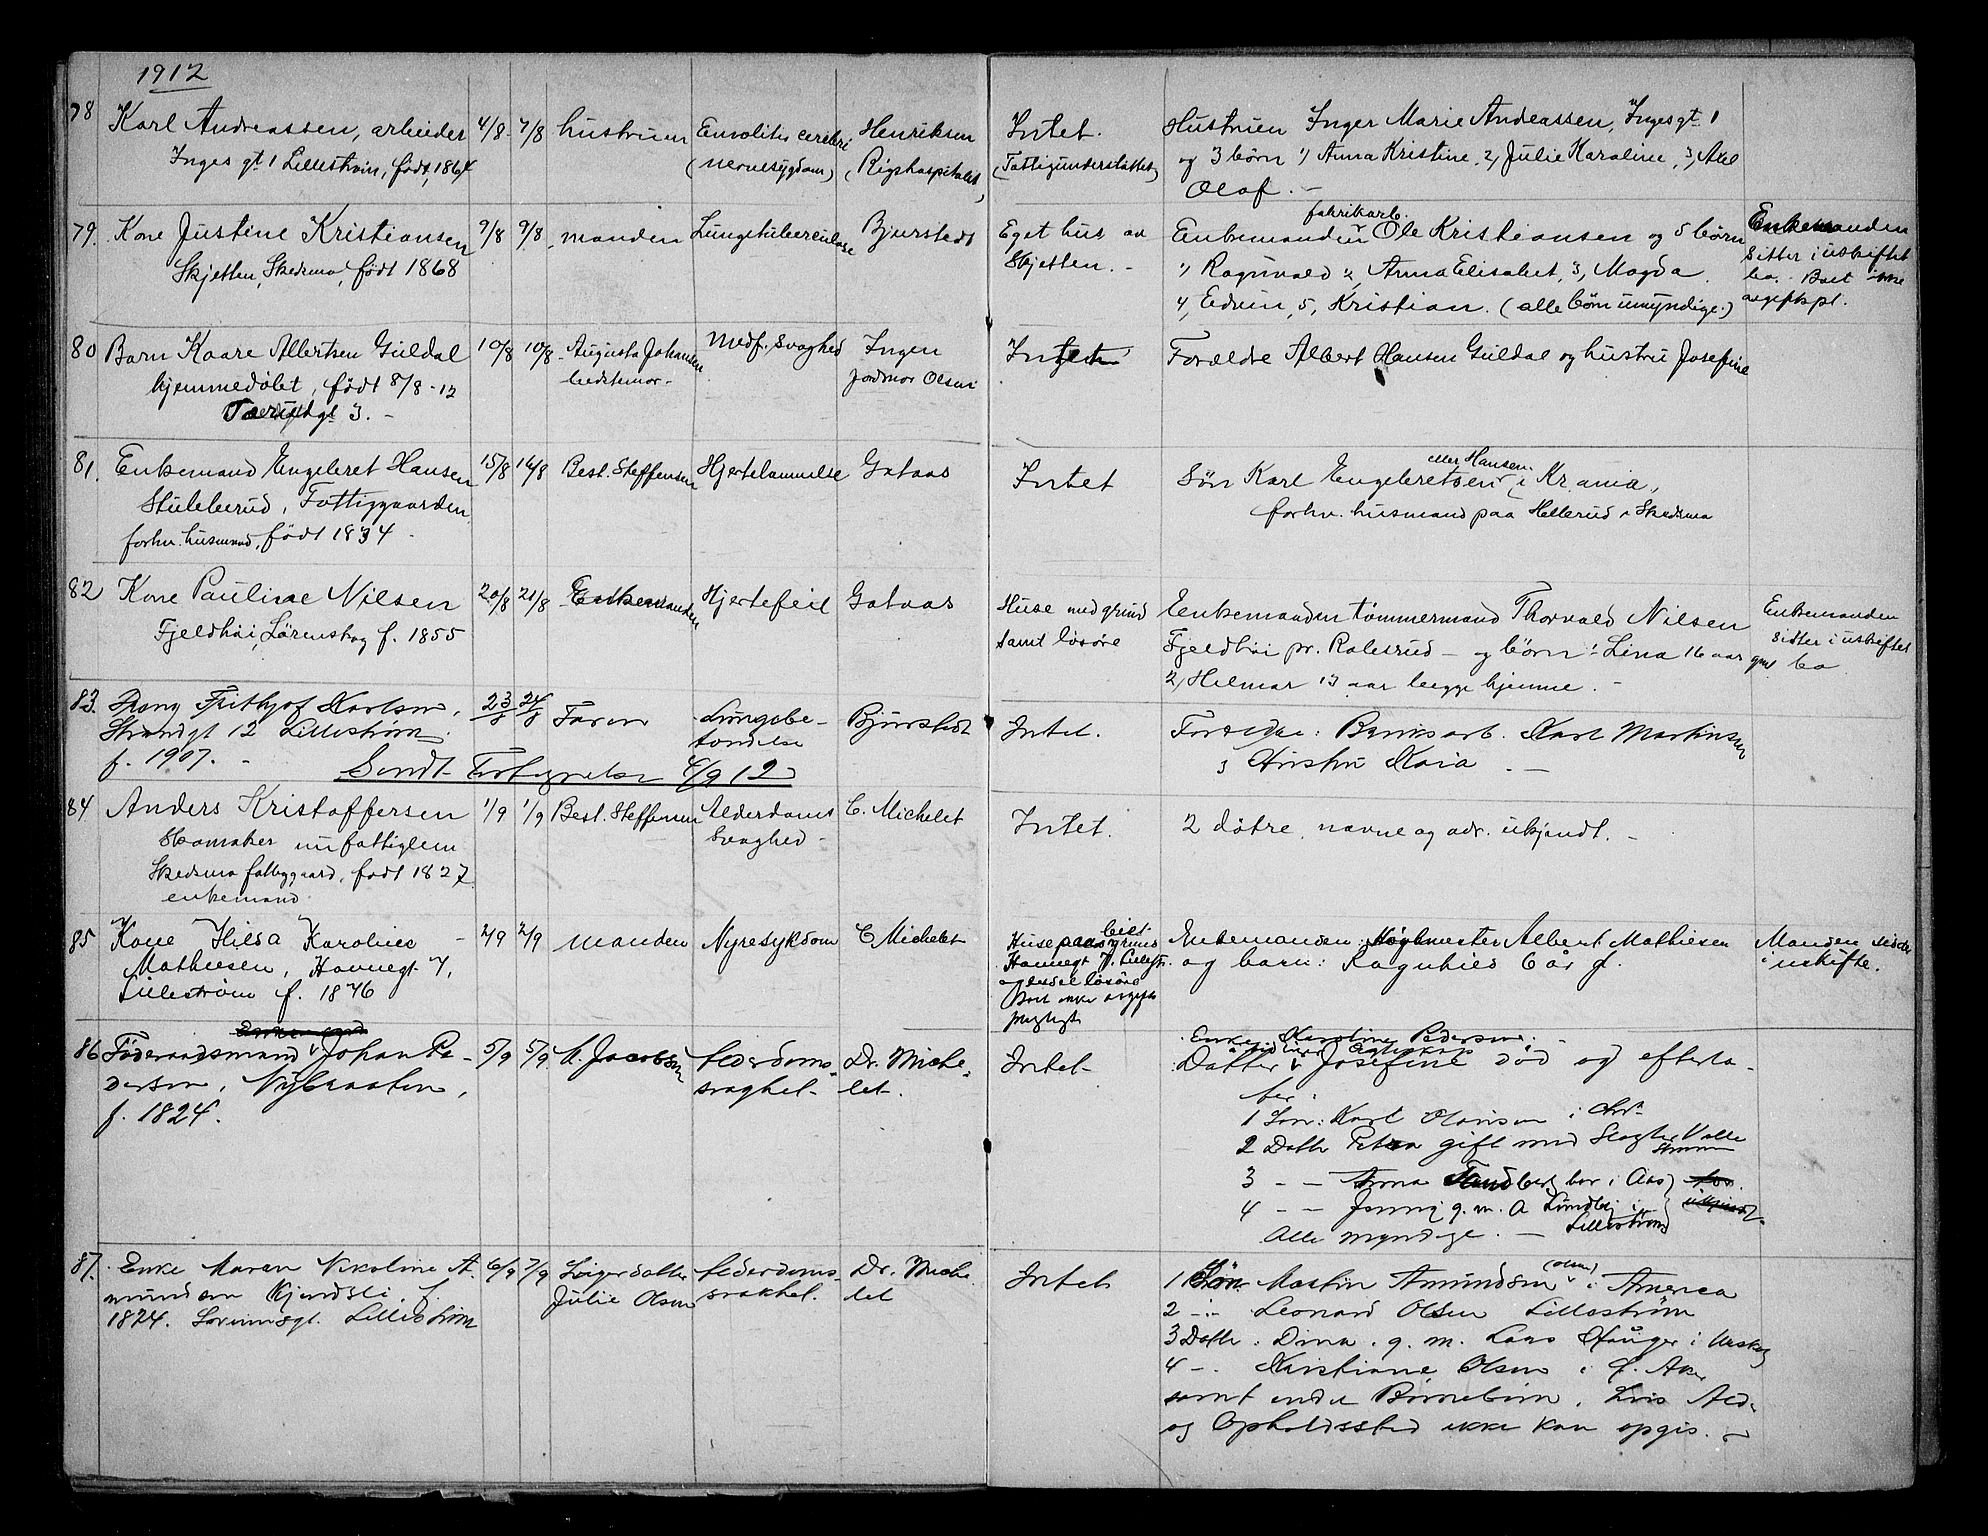 1912
78 Karl Andreassen, arbeider 4/8 7/8 hustruen cerebri Henriksen Intet. Hustruen Inger Marie Andreassen, Ingesgt 1
Inges gt 1 Lillestrøm, født 1864 (nervesygdom) (Rigshospitalet) (Fattigunderstøttet) og 3 børn 1) Anna Kristine, 2) Julie Karoline, 3) Axel
Olaf. –
79. Kone Justine Kristiansen 9/8 9/8 manden Lungetuberculose Bjurstedt Eget hus av Enkemanden fabrikarb. Ole Kristiansen og 5 børn Enkemanden
Skjetten, Skedsmo, født 1868 Skjetten. – 1) Ragnvald 2, Anna Elisabet, 3, Magda sitter i uskiftet
4, Edvin, 5, Kristian. (alle børn umyndige.) bo. Boet ikke
avgiftspl.
80 Barn Kaare Albertsen Guldal 10/8 10/8 Augusta Johansen Medf. Svaghed Ingen Intet Forældre Albert Hansen Guldal og hustru Josefine
hjemmedøbt, født 8/8-12 bedstemor - Jordmor Olsen
gt 3. –
81. Enkemand Engebret Hansen 15/8 16/8 Best. Steffensen Hjertelammelse Gataas Intet Søn Karl Engebretsen eller Hansen i Kr.ania,
Stubberud, Fattiggaarden, forhv. husmand paa Hellerud i Skedsmo
forhv. husmand, født 1834
82 Kone Pauline Nilsen 20/8 21/8 Enkemanden Hjertefeil Gataas Huse med grund Enkemanden tømmermand Thorvald Nilsen Enkemanden
Fjeldhøi, Lørenskog f. 1855 samt løsøre Fjeldhøi pr. Robsrud – og børn 1 Lina 16 aar gml sitter i uskiftet
2, Helmar 13 aar begge hjemme. – bo
83. Frithjof Karlsen, 23/8 24/8 Faren Lungebe- Bjurstedt Intet. Forældre: Bruksarb. Karl Martinsen
Strandgt 12 Lillestrøm. tændelse Hustru Kaia. –
f. 1907. – Sendt Fortegnelse 6/9 12
84 Anders Kristoffersen 1/9 1/9 Best. Steffensen Alderdoms C. Michelet Intet. 2 døtre, navne og adr. ukjendt. –
Skomaker nu fattiglem Svaghed –
Skedsmo fattiggaard, født 1827
enkemand
85 Kone Hilda Karoline 2/9 2/9 manden Nyresykdom C Michelet Huse paa bygslet grund Enkemanden: Albert Mathiesen Manden sidder
Mathiesen, Havnegt 7, Havnegt 7. Lillestr. og barn: Ragnhild 6 år gl. i uskifte.
Lillestrøm f. 1876 og endel løsøre
Boet ikke avgifts
pligtigt
86 Føderaadsmand Johan Pe- 5/9 5/9 A. Jacobsen Alderdoms- Dr. Miche- Intet Enke Karoline Pedersen.
dersen, Nybraaten, svaghet. let. Datter Josefine død og efterla-
f. 1824. ter:
1 Søn: Karl Olausen i Chra
2 Dattr Petra gift med Slagter Valle
3 – – Anna bor i Aas
4 – – Jenny g. m. A Lundby i Lillestrøm
Alle myndige. –
87. Enke Maren Nikoline A- 6/9 7/9 Svigerdatter Alderdoms- Dr. Miche- Intet 1 Søn Martin Amundsen (Olsen) i Amerca
mundsen Kjendsli f. Julie Olsen svakhet. let 2 –"– Leonard Olsen Lillestrøm
1824. gt. Lillestrøm 3 Dattr. Dina. g. m. Lars i Urskog
4 –. Kristiane Olsen i Ø. Aker
samt endel Børnebørn. hvis Ald-
og Opholdssted ikke kan opgis. –